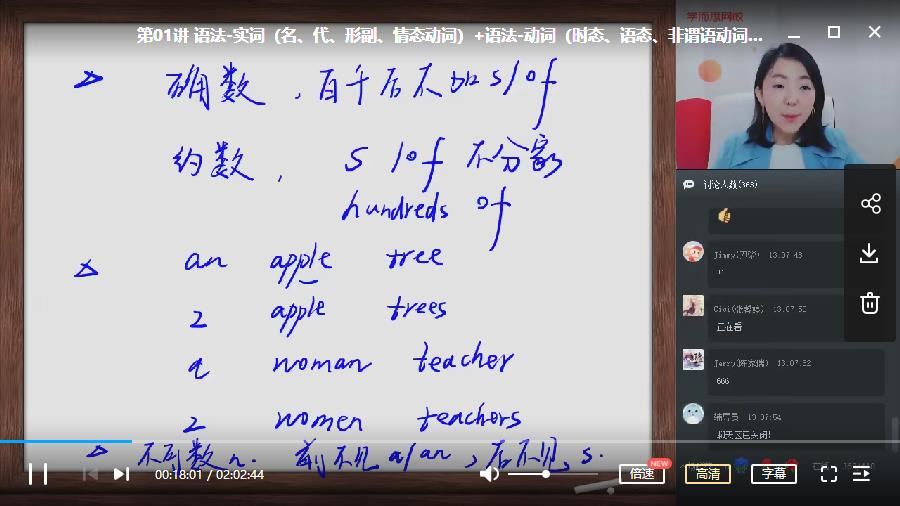 学而思网校
第01讲 语法-实词（名、代、形副、情态动词）+语法-动词（时态、语态、非谓语动词...
△ 确数，百千后不加s/of
约数， s/of 不分家
hundreds of
△ an apple tree
2 apple trees
a woman teacher
2 women teachers
△ 不可数n. 前不见a/an，后不见s.
讨论人数(363)
13:07:43
13:07:50
正在看
13:07:52
666
辅导员 13:07:54
聊天区已关闭!
00:18:01 / 02:02:44
倍速
NEW
高清
字幕